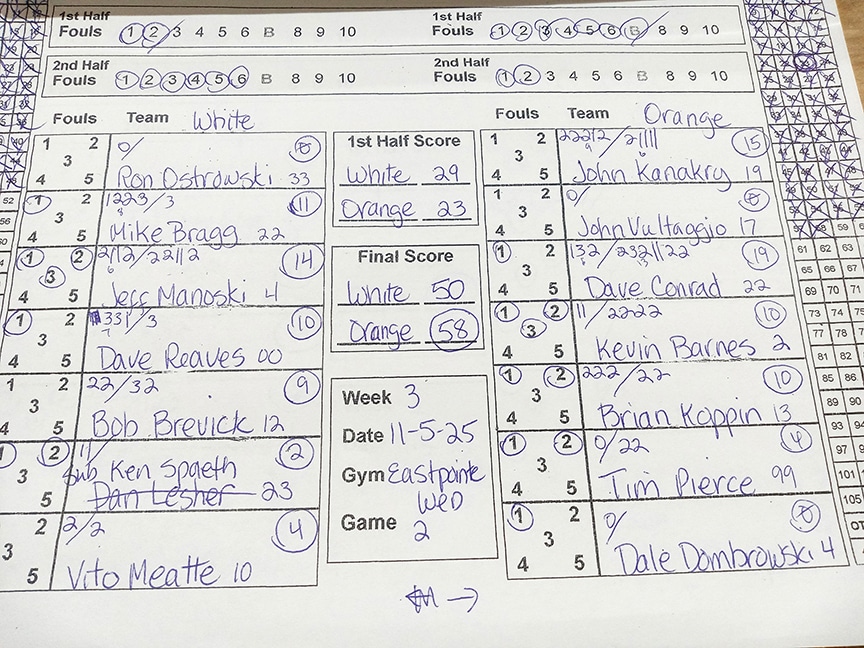 1st Half Fouls 1 2 3 4 5 6 B 8 9 10
1st Half Fouls 1 2 3 4 5 6 B 8 9 10
2nd Half Fouls 1 2 3 4 5 6 B 8 9 10
2nd Half Fouls 1 2 3 4 5 6 B 8 9 10
Fouls Team White
1 2 3 4 5
0/ 0
Ron Ostrowski 33
1 2 3 4 5
1223/3 11
8
Mike Bragg 22
1 2 3 4 5
2112/22112 14
6
Jeff Manoski 4
1 2 3 4 5
331/3 10
7
Dave Reaves 00
1 2 3 4 5
22/32 9
Bob Brevick 12
1 2 3 5
11 2
Sub Ken Spaeth
Dan Lesher 23
2 3 5
2/2 4
Vito Meatte 10
1st Half Score
White 29
Orange 23
Final Score
White 50
Orange 58
Week 3
Date 11-5-25
Gym Eastpointe
Wed
Game 2
Fouls Team Orange
1 2 3 4 5
22212/21111 15
9
John Kanakry 19
1 2 3 4 5
0/ 0
John Vultaggio 17
1 2 3 4 5
132/2321122 19
Dave Conrad 22
1 2 3 4 5
11/2222 10
Kevin Barnes 2
1 2 3 4 5
222/22 10
Brian Koppin 13
1 2 3 4 5
0/22 4
Tim Pierce 99
1 2 3 4 5
0/ 0
Dale Dombrowski 4
52
56
59
61 62 63
65 66 67
69 70 71
73 74 75
77 78
81 82
85 86
89 90
93 94
97
101
105
OT
→